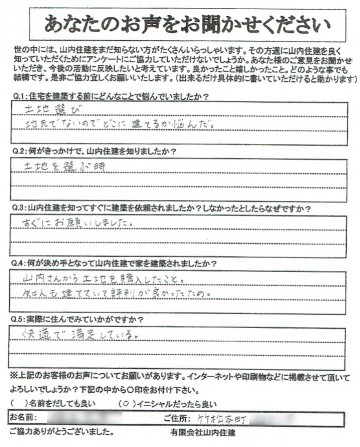 あなたのお声をお聞かせください
世の中には、山内住建をまだ知らない方がたくさんいらっしゃいます。その方達に山内住建を良く
知っていただくためにアンケートにご協力していただけないでしょうか。あなた様のご意見をお聞かせ
いただき、今後の活動に反映したいと考えています。良かったこと嬉しかったこと。どのような事でも
結構です。是非ご協力宜しくお願いいたします。(出来るだけ具体的に書いていただけると助かります)
Q.1:住宅を建築する前にどんなことで悩んでいましたか?
土地選び
地元でないのでどこに建てるか悩んだ。
Q.2:何がきっかけで、山内住建を知りましたか?
土地を選ぶ時
Q.3:山内住建を知ってすぐに建築を依頼されましたか?しなかったとしたらなぜですか?
すぐにお願いしました。
Q.4:何が決め手となって山内住建で家を建築されましたか?
山内さんから土地を購入したこと。
知人も建てていて評判が良かったため。
Q.5:実際に住んでみていかがですか?
快適で満足している。
※上記のお客様のお声についてお願いがあります。インターネットや印刷物などに掲載させて頂いて
よろしいでしょうか?下記の中から○印をお付け下さい。
( )名前をだしても良い (○)イニシャルだったら良い
お名前: ご住所: 竹松谷町
ご協力ありがとうございました。 有限会社山内住建